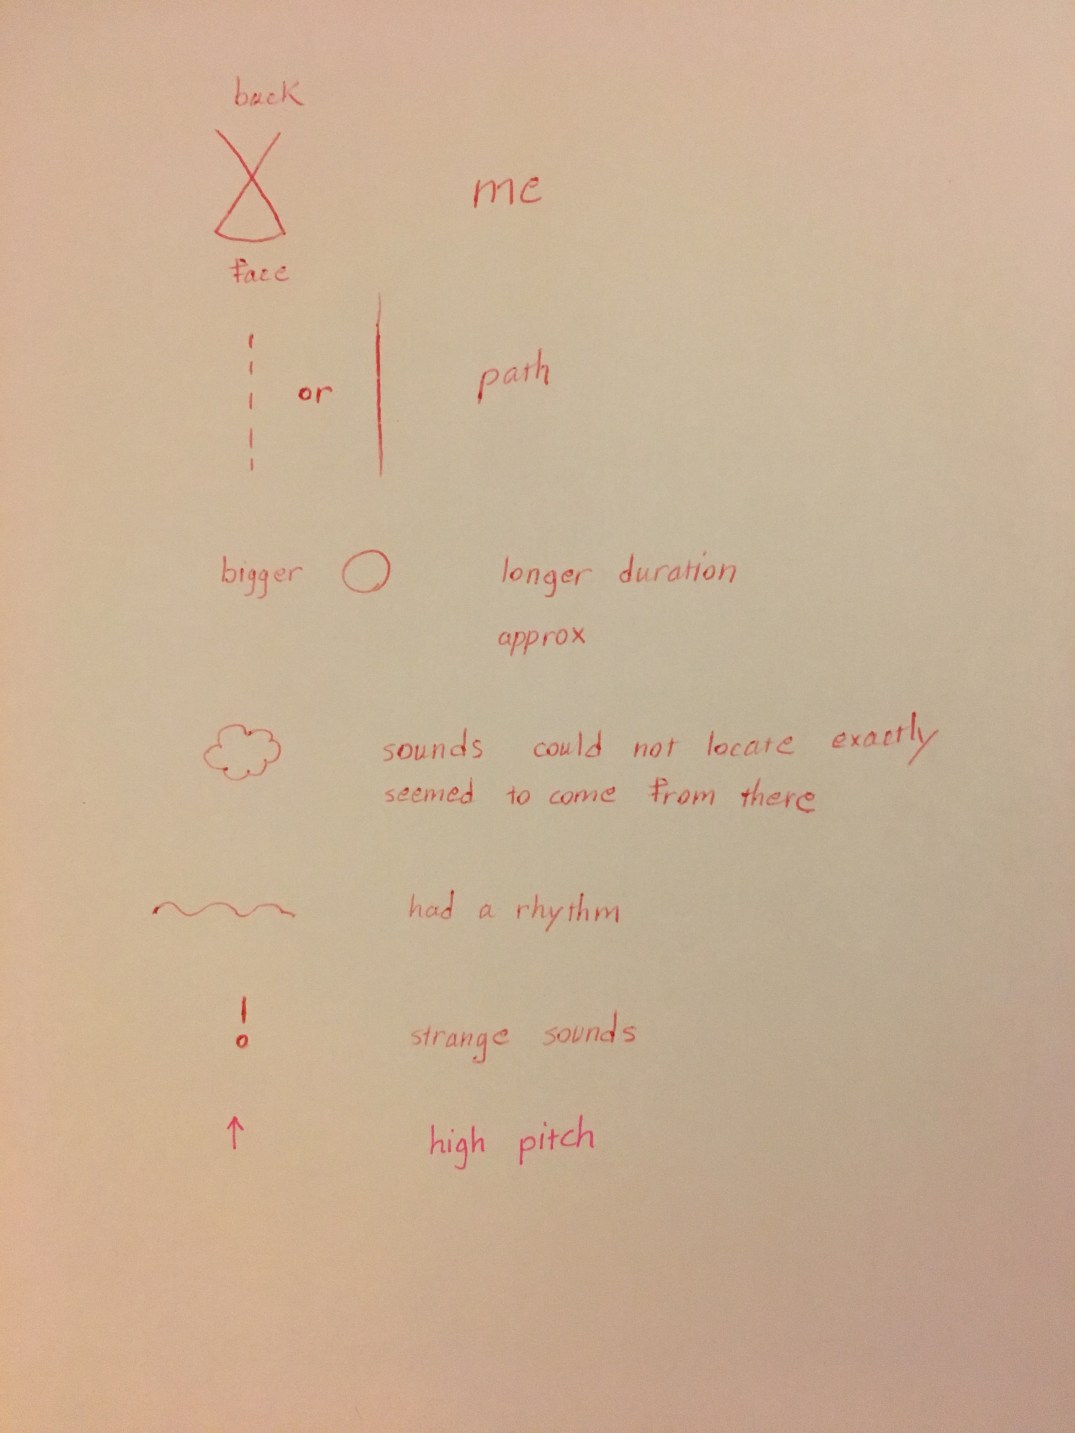 back
me
face
or
path
bigger longer duration
approx
sounds could not locate exactly
seemed to come from there
had a rhythm
! strange sounds
↑ high pitch